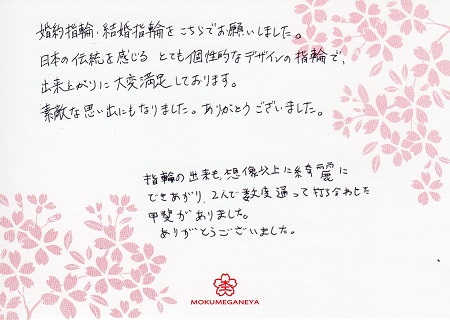 婚約指輪・結婚指輪をこちらでお願いしました。
日本の伝統を感じる とても個性的なデザインの指輪で、
出来上がりに大変満足しております。
素敵な思い出にもなりました。ありがとうございました。
指輪の出来も、想像以上に綺麗に
できあがり、2人で数度通って打ちあわせした
甲斐がありました。
ありがとうございました。
MOKUMEGANEYA